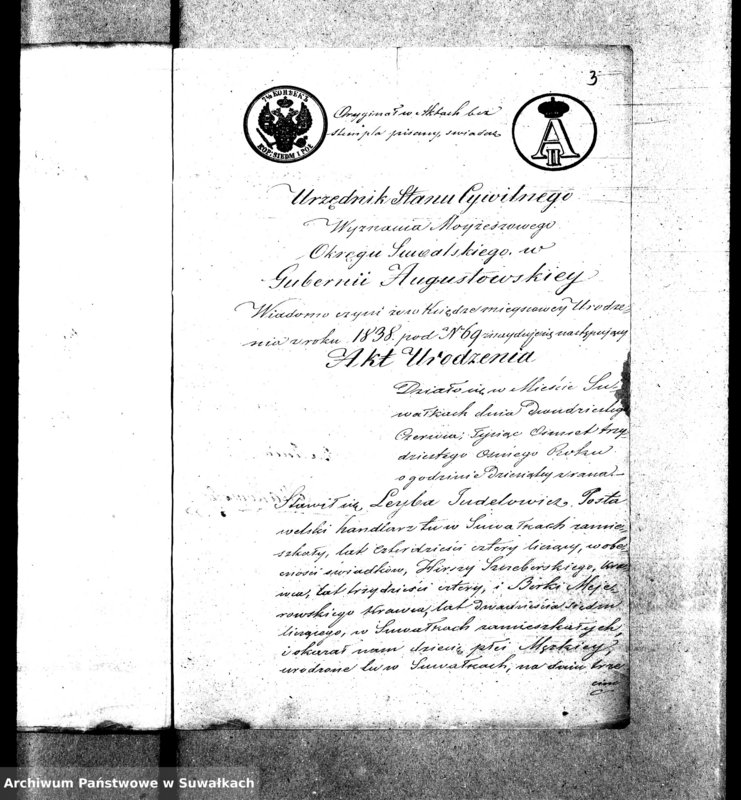 3
7½ KOPBEKЪ
KOP: SIEDM I PÓŁ
A II
Oryginał w Aktach bez
stempla pisany, świadczę
Urzędnik Stanu Cywilnego
Wyznania Moyżeszowego
Okręgu Suwalskiego, w
Gubernii Augustowskiey
Wiadomo czyni że w Księdze mieyscowey Urodze-
nia z roku 1838 pod No 69 znayduje się następujący
Akt Urodzenia
Działo się w Mieście Su-
wałkach dnia Dwudziestego
Czerwca, Tysiąc Osmset trzy-
dziestego Osmego Roku
o godzinie Dziesiątey z rana.—
Stawił się, Leyba Judelowicz Posta-
welski handlarz tu w Suwałkach zamie-
szkały, lat czterdzieści cztery liczący, w obe-
cności świadków, Hirszy Szreberskiego, kra-
wca, lat trzydzieści cztery, i Berki Mejer-
rowskiego krawca, lat dwadzieścia siedm
liczącego, w Suwałkach zamieszkałych,
i okazał nam dziecię płci Męzkiey,
urodzone tu w Suwałkach, na dniu trze-
cim
Archiwum Państwowe w Suwałkach